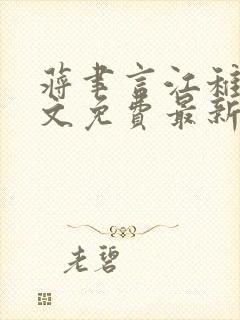 蒋聿言江稚
文免费最新
老碧